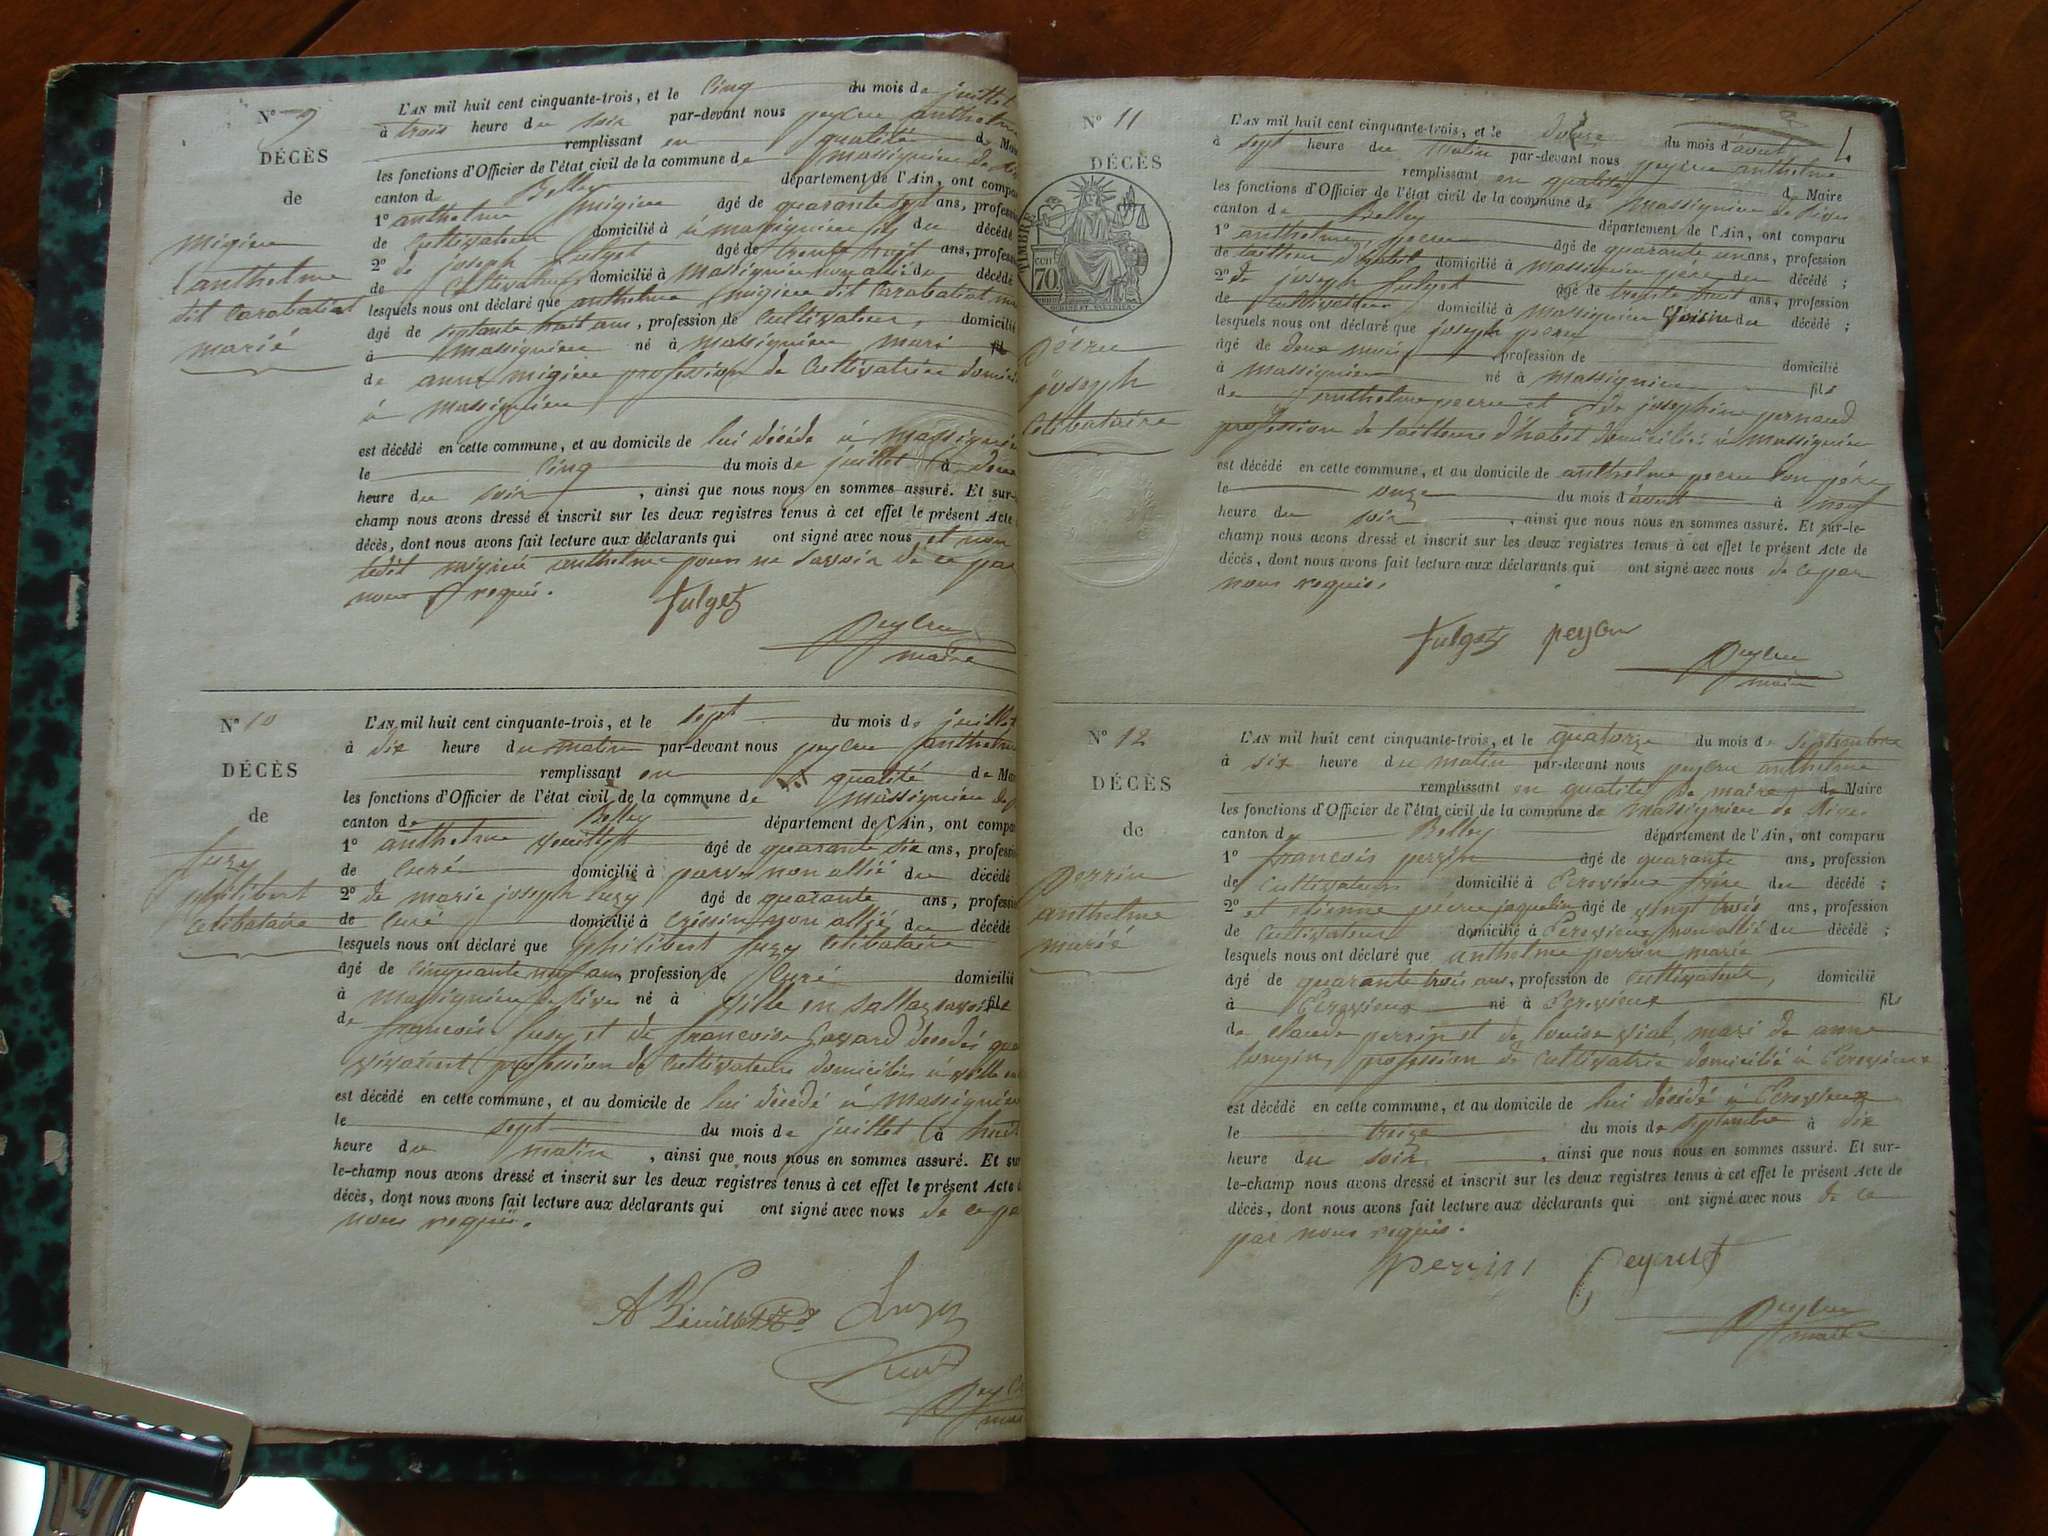 N° 9
DÉCÈS
de
migieu
anthelme
dit Carabatiat
marié
L'AN mil huit cent cinquante-trois, et le cinq du mois de juillet
à trois heure du soir par-devant nous peyeru anthelme
remplissant en qualité de Maire
les fonctions d'Officier de l'état civil de la commune de Massignieu de
canton de Belley département de l'Ain, ont compa
1° anthelme migieu âgé de quarante sept ans, profession
de Cultivateur domicilié à Massignieu fils du décédé
2° de joseph fulget âgé de trente huit ans, profess
de Cultivateur domicilié à Massignieu non allié du décédé
lesquels nous ont déclaré que anthelme migieu dit Carabatiat
âgé de septante huit ans, profession de Cultivateur, domicilié
à Massignieu né à Massignieu mari
de anne migieu profession de Cultivatrice domicil
à Massignieu
est décédé en cette commune, et au domicile de lui décédé à Massignieu
le cinq du mois de juillet à deux
heure du soir, ainsi que nous nous en sommes assuré. Et sur-
champ nous avons dressé et inscrit sur les deux registres tenus à cet effet le présent Acte
décès, dont nous avons fait lecture aux déclarants qui ont signé avec nous et non
ledit migieu anthelme pour ne savoir de ce par
nous requis.
fulget
peyeru
maire
N° 10
DÉCÈS
de
fuzy
philibert
celibataire
L'AN mil huit cent cinquante-trois, et le sept du mois de juillet
à dix heure du matin par-devant nous peyeru anthelme
remplissant en qualité de Mai
les fonctions d'Officier de l'état civil de la commune de Massignieu de
canton de Belley département de l'Ain, ont compa
1° anthelme âgé de quarante six ans, profession
de Curé domicilié à parves non allié du décédé
2° de marie joseph fuzy âgé de quarante ans, profession
de Curé domicilié à Cressin non allié du décédé
lesquels nous ont déclaré que philibert fuzy Celibataire
âgé de cinquante neuf ans, profession de Curé domicilié
à Massignieu de Rives né à Ville en Sallaz savoie fils
de françois fuzy et de françoise Gavard décédés quand
vivaient profession de Cultivateurs domiciliés à Ville en
est décédé en cette commune, et au domicile de lui décédé à Massignieu
le sept du mois de juillet à huit
heure du matin, ainsi que nous nous en sommes assuré. Et sur
le-champ nous avons dressé et inscrit sur les deux registres tenus à cet effet le présent Acte
décès, dont nous avons fait lecture aux déclarants qui ont signé avec nous de ce par
nous requis.
fuzy
Curé
peyeru
maire
N° 11
DÉCÈS
TIMBRE
CEN
70
peeru
joseph
Celibataire
L'AN mil huit cent cinquante-trois, et le douze du mois d'août
à sept heure du matin par-devant nous peyeru anthelme
remplissant en qualité d Maire
les fonctions d'Officier de l'état civil de la commune de Massignieu de Rives
canton de Belley département de l'Ain, ont comparu
1° anthelme peeru âgé de quarante un ans, profession
de tailleur d'habit domicilié à Massignieu père du décédé ;
2° de joseph fulget âgé de trente huit ans, profession
de Cultivateur domicilié à Massignieu voisin du décédé ;
lesquels nous ont déclaré que joseph peeru
âgé de deux mois profession de domicilié
à Massignieu né à Massignieu fils
de anthelme peeru et de josephine pernaud
profession de tailleur d'habit domiciliés à Massignieu
est décédé en cette commune, et au domicile de anthelme peeru son père
le onze du mois d'août à neuf
heure du soir, ainsi que nous nous en sommes assuré. Et sur-le-
champ nous avons dressé et inscrit sur les deux registres tenus à cet effet le présent Acte de
décès, dont nous avons fait lecture aux déclarants qui ont signé avec nous de ce par
nous requis.
fulget peyru
peyeru
maire
N° 12
DÉCÈS
de
perrin
anthelme
marié
L'AN mil huit cent cinquante-trois, et le quatorze du mois de septembre
à six heure du matin par-devant nous peyeru anthelme
remplissant en qualité de maire de Maire
les fonctions d'Officier de l'état civil de la commune de Massignieu de Rives
canton de Belley département de l'Ain, ont comparu
1° françois perrin âgé de quarante ans, profession
de Cultivateur domicilié à Crevieux frère du décédé ;
2° et etienne peeru jaquelin âgé de vingt trois ans, profession
de Cultivateur domicilié à non allié du décédé ;
lesquels nous ont déclaré que anthelme perrin marié
âgé de quarante trois ans, profession de Cultivateur, domicilié
à né à fils
de claude perrin et de louise vial, mari de anne
longin, profession de Cultivatrice domicilié à
est décédé en cette commune, et au domicile de lui décédé à
le treize du mois de septembre à dix
heure du soir, ainsi que nous nous en sommes assuré. Et sur-
le-champ nous avons dressé et inscrit sur les deux registres tenus à cet effet le présent Acte de
décès, dont nous avons fait lecture aux déclarants qui ont signé avec nous de ce
par nous requis.
Perrin peyrut
peyeru
maire